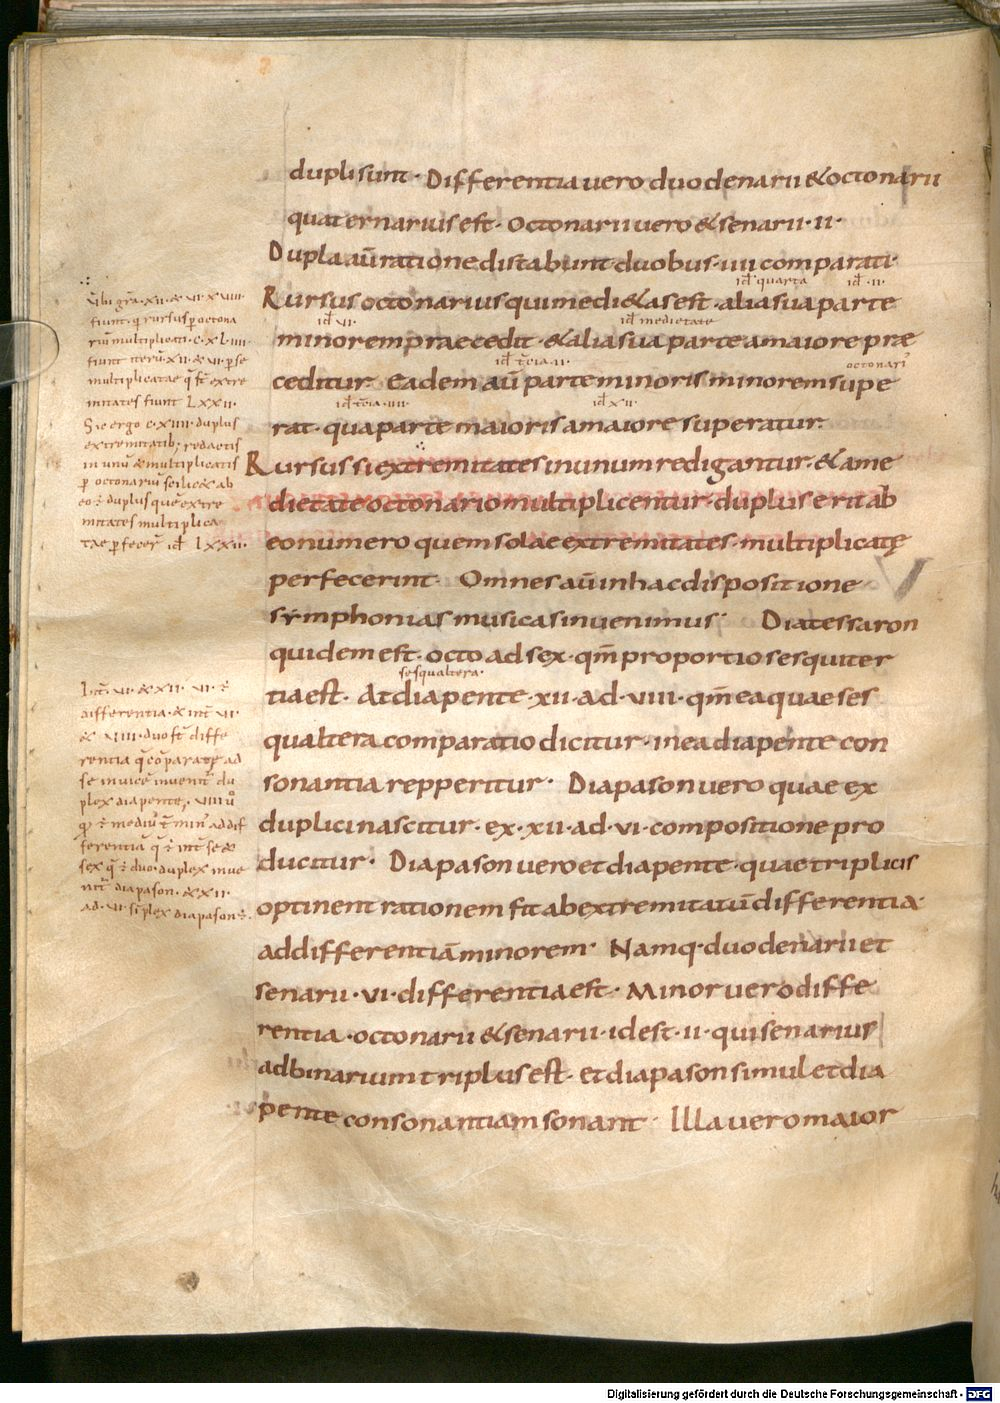 dupli sunt. Differentia uero duodenarii & octonarii
quaternarius est. Octonarii uero & senarii. ii.
Dupla aū ratione distabunt duobus. iiii comparati.
id quarta id .ii.
Rursus octonarius qui mediaetas est. alia sua parte
id .vi. id medietate
minorem praecedit. & alia sua parte a maiore prae
id tcia .ii. octonari
ceditur. Eadem aū parte minoris minorem supe
id tcia .iiii. id .xii.
rat. qua parte maioris a maiore superatur.
Rursus si extremitates in unum redigantur. & a me
dietate octonario multiplicentur. duplus erit ab
eo numero quem solae extremitates. multiplicatę
perfecerint. Omnes aū in hac dispositione
symphonias musicas inuenimus. Diatessaron
quidem est. octo ad sex. qm̄ proportio sesquiter
sesqualtera.
tia est. At diapente. xii. ad. viii. qm̄ ea quae ses
qualtera comparatio dicitur. in ea diapente con
sonantia repperitur. Diapason uero quae ex
duplici nascitur. ex. xii. ad. vi. compositione pro
ducitur. Diapason uero et diapente. quae triplicis
optinent rationem fit ab extremitatū differentia.
ad differentiā minorem. Namq. duodenarii et
senarii. vi. differentia est. Minor uero diffe
rentia. octonarii & senarii. id est. ii. qui senarius
ad binarium triplus est. et diapason simul et dia
pente consonantiam sonant. Illa uero maior
Vbi gra .xii. & .vi. xviii.
fiunt. q rursus p octona
riū multiplicati .cxLiiii.
fiunt iterū .xii. & vi. p se
multiplicatae q st extre
mitates fiunt LXXII.
Sic ergo cxLiiii. duplus
extremitatib; redactis
in unū & multiplicatis
p octonariū scilic& ab
eo ē duplus que extre
mitates multiplica
tae pfecer id LXXII.
Int .vi. & xii. vi. ē
differentia. & int vi.
& viii. duo st diffe
rentia q cōparatę ad
se inuicē inuenit du
plex diapente. viii u
q ē mediu & min addif
ferentia q ē int se &
sex q ē duo. duplex inue
nit diapason. & xii.
ad .vi. siplex diapason ē.
Digitalisierung gefördert durch die Deutsche Forschungsgemeinschaft - DFG